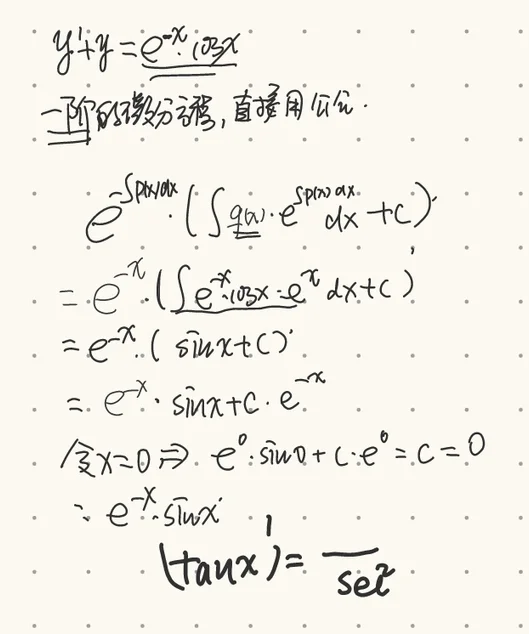 y'+y=e^{-x}·cosx
一阶的微分方程,直接用公式.
e^{-∫p(x)dx}·(∫q(x)·e^{∫p(x)dx}dx+C)
=e^{-x}·(∫e^{-x}·cosx·e^{x}dx+C)
=e^{-x}·(sinx+C)
=e^{-x}·sinx+C·e^{-x}
令x=0⇒e^{0}·sin0+C·e^{0}=C=0
∴e^{-x}·sinx
(tanx)'=—/sec²